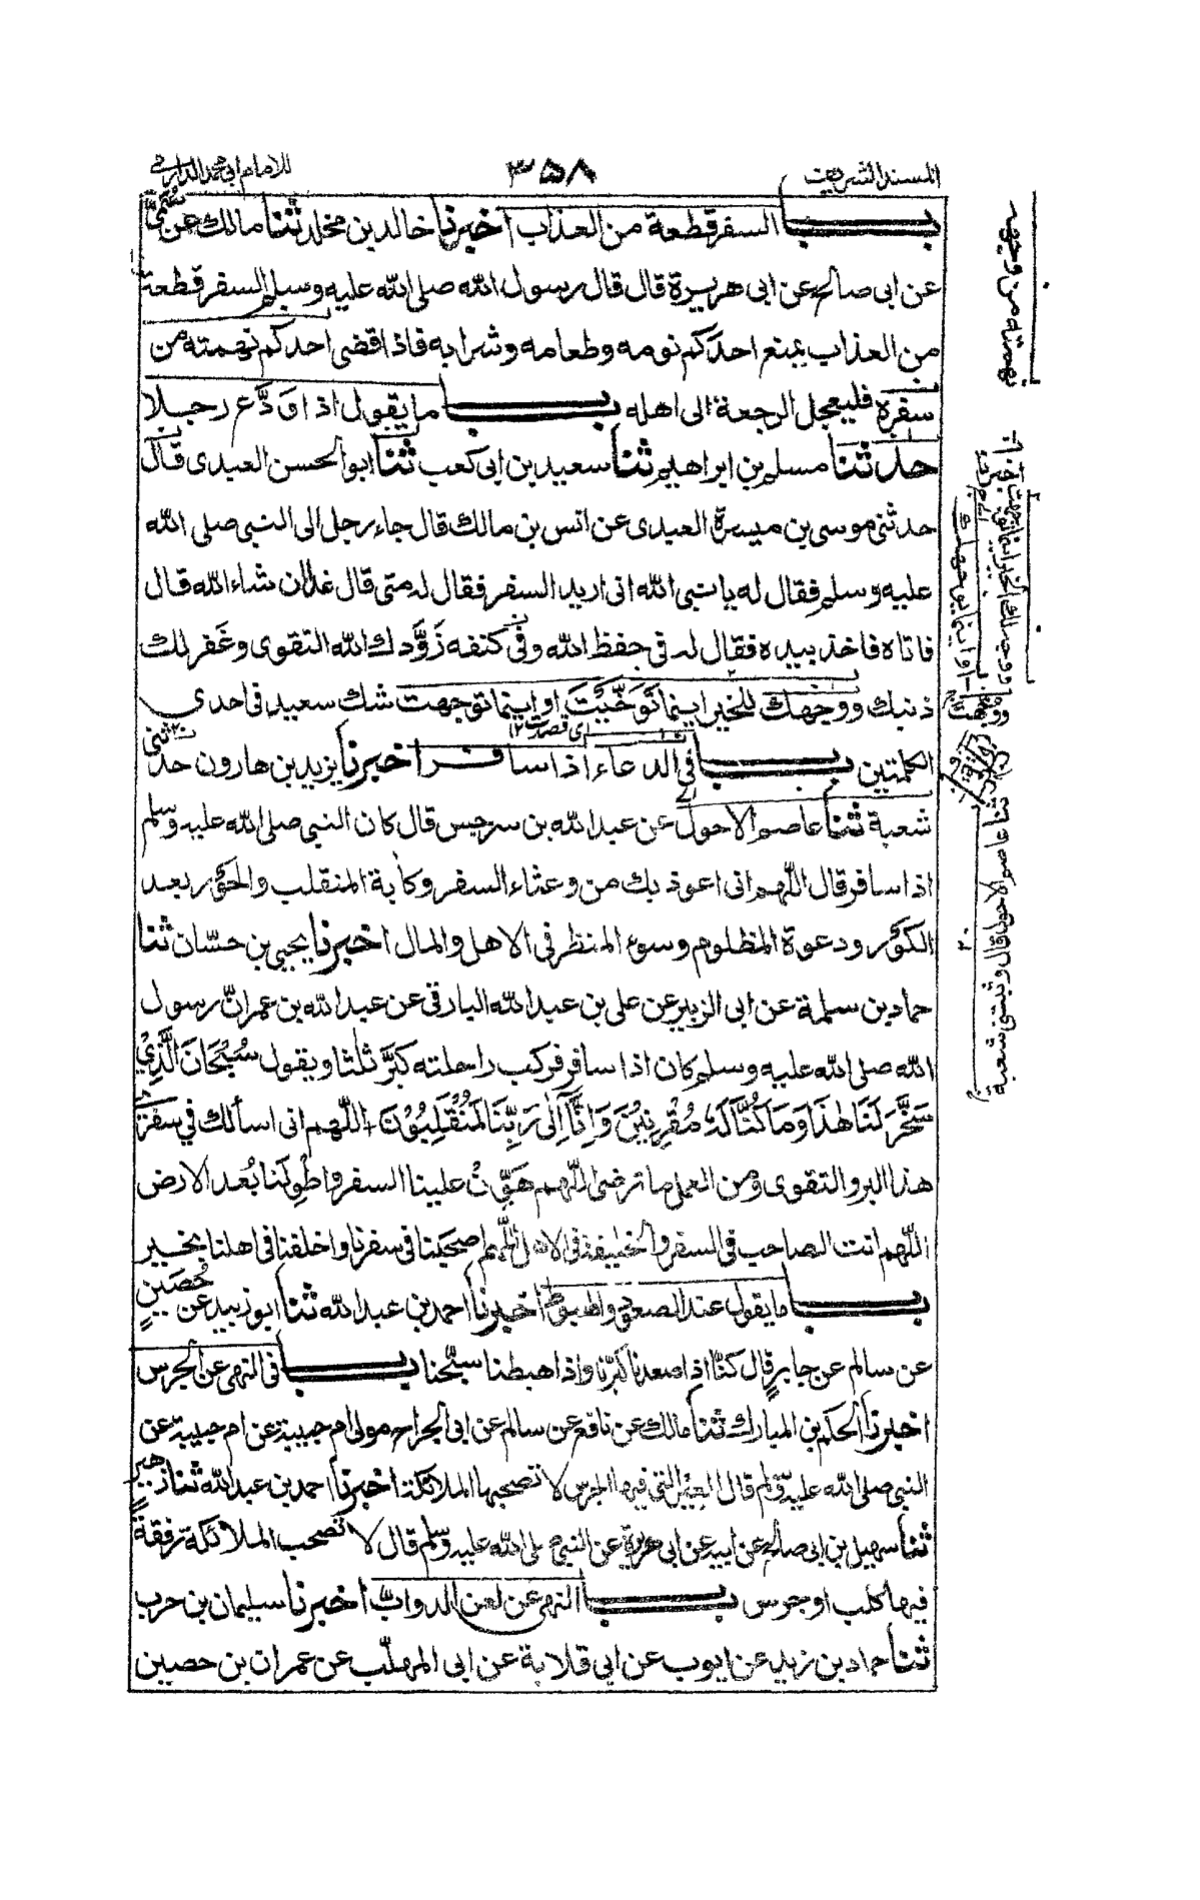 المسند الشريف ٣٥٨ للامام ابي محمد الدارمي
باب السفر قطعة من العذاب اخبرنا خالد بن مخلد ثنا مالك عن سُمَيّ
عن ابي صالح عن ابي هريرة قال قال رسول الله صلى الله عليه وسلم السفر قطعة
من العذاب يمنع احدكم نومه وطعامه وشرابه فاذا قضى احدكم نهمته من
سفره فليعجل الرجعة الى اهله باب ما يقول اذا ودَّع رجلا
حدثنا مسلم بن ابراهيم ثنا سعيد بن ابي كعب ثنا ابو الحسن العبدى قال
حدثني موسى بن ميسرة العبدى عن انس بن مالك قال جاء رجل الى النبى صلى الله
عليه وسلم فقال له يا نبى الله انى اريد السفر فقال له متى قال غدا ان شاء الله قال
فاتاه فاخذ بيده فقال له فى حفظ الله وفى كنفه زوَّدك الله التقوى وغفر لك
ذنبك ووجَّهك للخير اينما تَوَخَّيْتَ او اينما توجهت شك سعيد فى احدى
اى قصدت ١٢
الكلمتين باب فى الدعاء اذا سافر اخبرنا يزيد بن هارون حدثنى
شعبة ثنا عاصم الاحول عن عبد الله بن سرجس قال كان النبى صلى الله عليه وسلم
اذا سافر قال اللّٰهم انى اعوذ بك من وعثاء السفر وكأبة المنقلب والحور بعد
الكور ودعوة المظلوم وسوء المنظر فى الاهل والمال اخبرنا يحيى بن حسّان ثنا
حماد بن سلمة عن ابى الزبير عن على بن عبد الله البارقى عن عبد الله بن عمر انّ رسول
الله صلى الله عليه وسلم كان اذا سافر فركب راحلته كبَّر ثلثا ويقول سُبْحَانَ الَّذِيْ
سَخَّرَ لَنَا هٰذَا وَمَا كُنَّا لَهٗ مُقْرِنِيْنَ وَاِنَّآ اِلٰى رَبِّنَا لَمُنْقَلِبُوْنَ اللّٰهم انى اسألك فى سفرى
هذا البر والتقوى ومن العمل ما ترضى اللّٰهم هَوِّنْ علينا السفر واطْوِ لنا بُعد الارض
اللّٰهم انت الصاحب فى السفر والخليفة فى الاهل اللّٰهم اصحبنا فى سفرنا واخلفنا فى اهلنا بخير
باب ما يقول عند الصعود والهبوط اخبرنا احمد بن عبد الله ثنا ابو زبيد عن حُصَينٍ
عن سالم عن جابرٍ قال كنّا اذا صعدنا كبّرنا واذا هبطنا سبّحنا باب فى النهى عن الجرس
اخبرنا الحكم بن المبارك ثنا مالك عن نافع عن سالم عن ابى الجراح مولى ام حبيبة عن ام حبيبة عن
النبى صلى الله عليه وسلم قال العِيْر التى فيها الجرس لا تصحبها الملائكة اخبرنا احمد بن عبد الله ثنا زهيرٌ
ثنا سهيل بن ابى صالح عن ابيه عن ابى هريرة عن النبى صلى الله عليه وسلم قال لا تصحب الملائكة رفقةً
فيها كلب او جرس باب النهى عن لعن الدواب اخبرنا سليمان بن حرب
ثنا حماد بن زيد عن ايوب عن ابى قلابة عن ابى المهلّب عن عمران بن حصين
نهمته من وجهه
ثنا عاصم الاحول قال وثبتنى شعبة